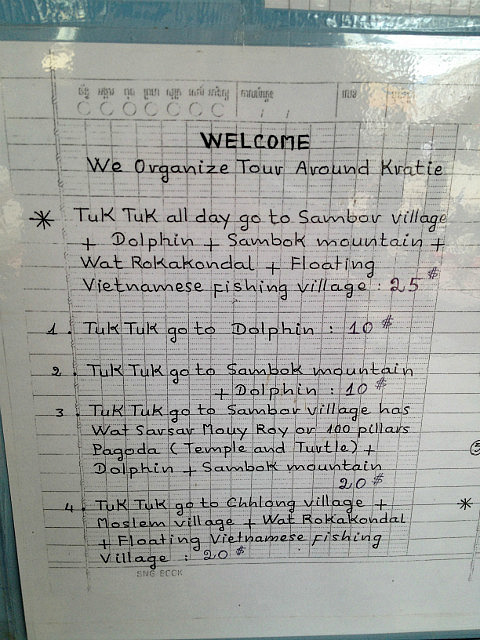 WELCOME
We Organize Tour Around Kratie
* Tuk Tuk all day go to Sambor village
+ Dolphin + Sambok mountain +
Wat Rokakondal + Floating
Vietnamese fishing village : 25 $
1. Tuk Tuk go to Dolphin : 10 $
2. Tuk Tuk go to Sambok mountain
+ Dolphin : 10 $
3 Tuk Tuk go to Sambor village has
Wat Sarsar Mouy Roy or 100 pillars
Pagoda ( Temple and Turtle) +
Dolphin + Sambok mountain
20 $
4. Tuk Tuk go to Chhlong village + *
Moslem village + Wat Rokakondal
+ Floating Vietnamese fishing
Village : 20 $
SNG BCCK